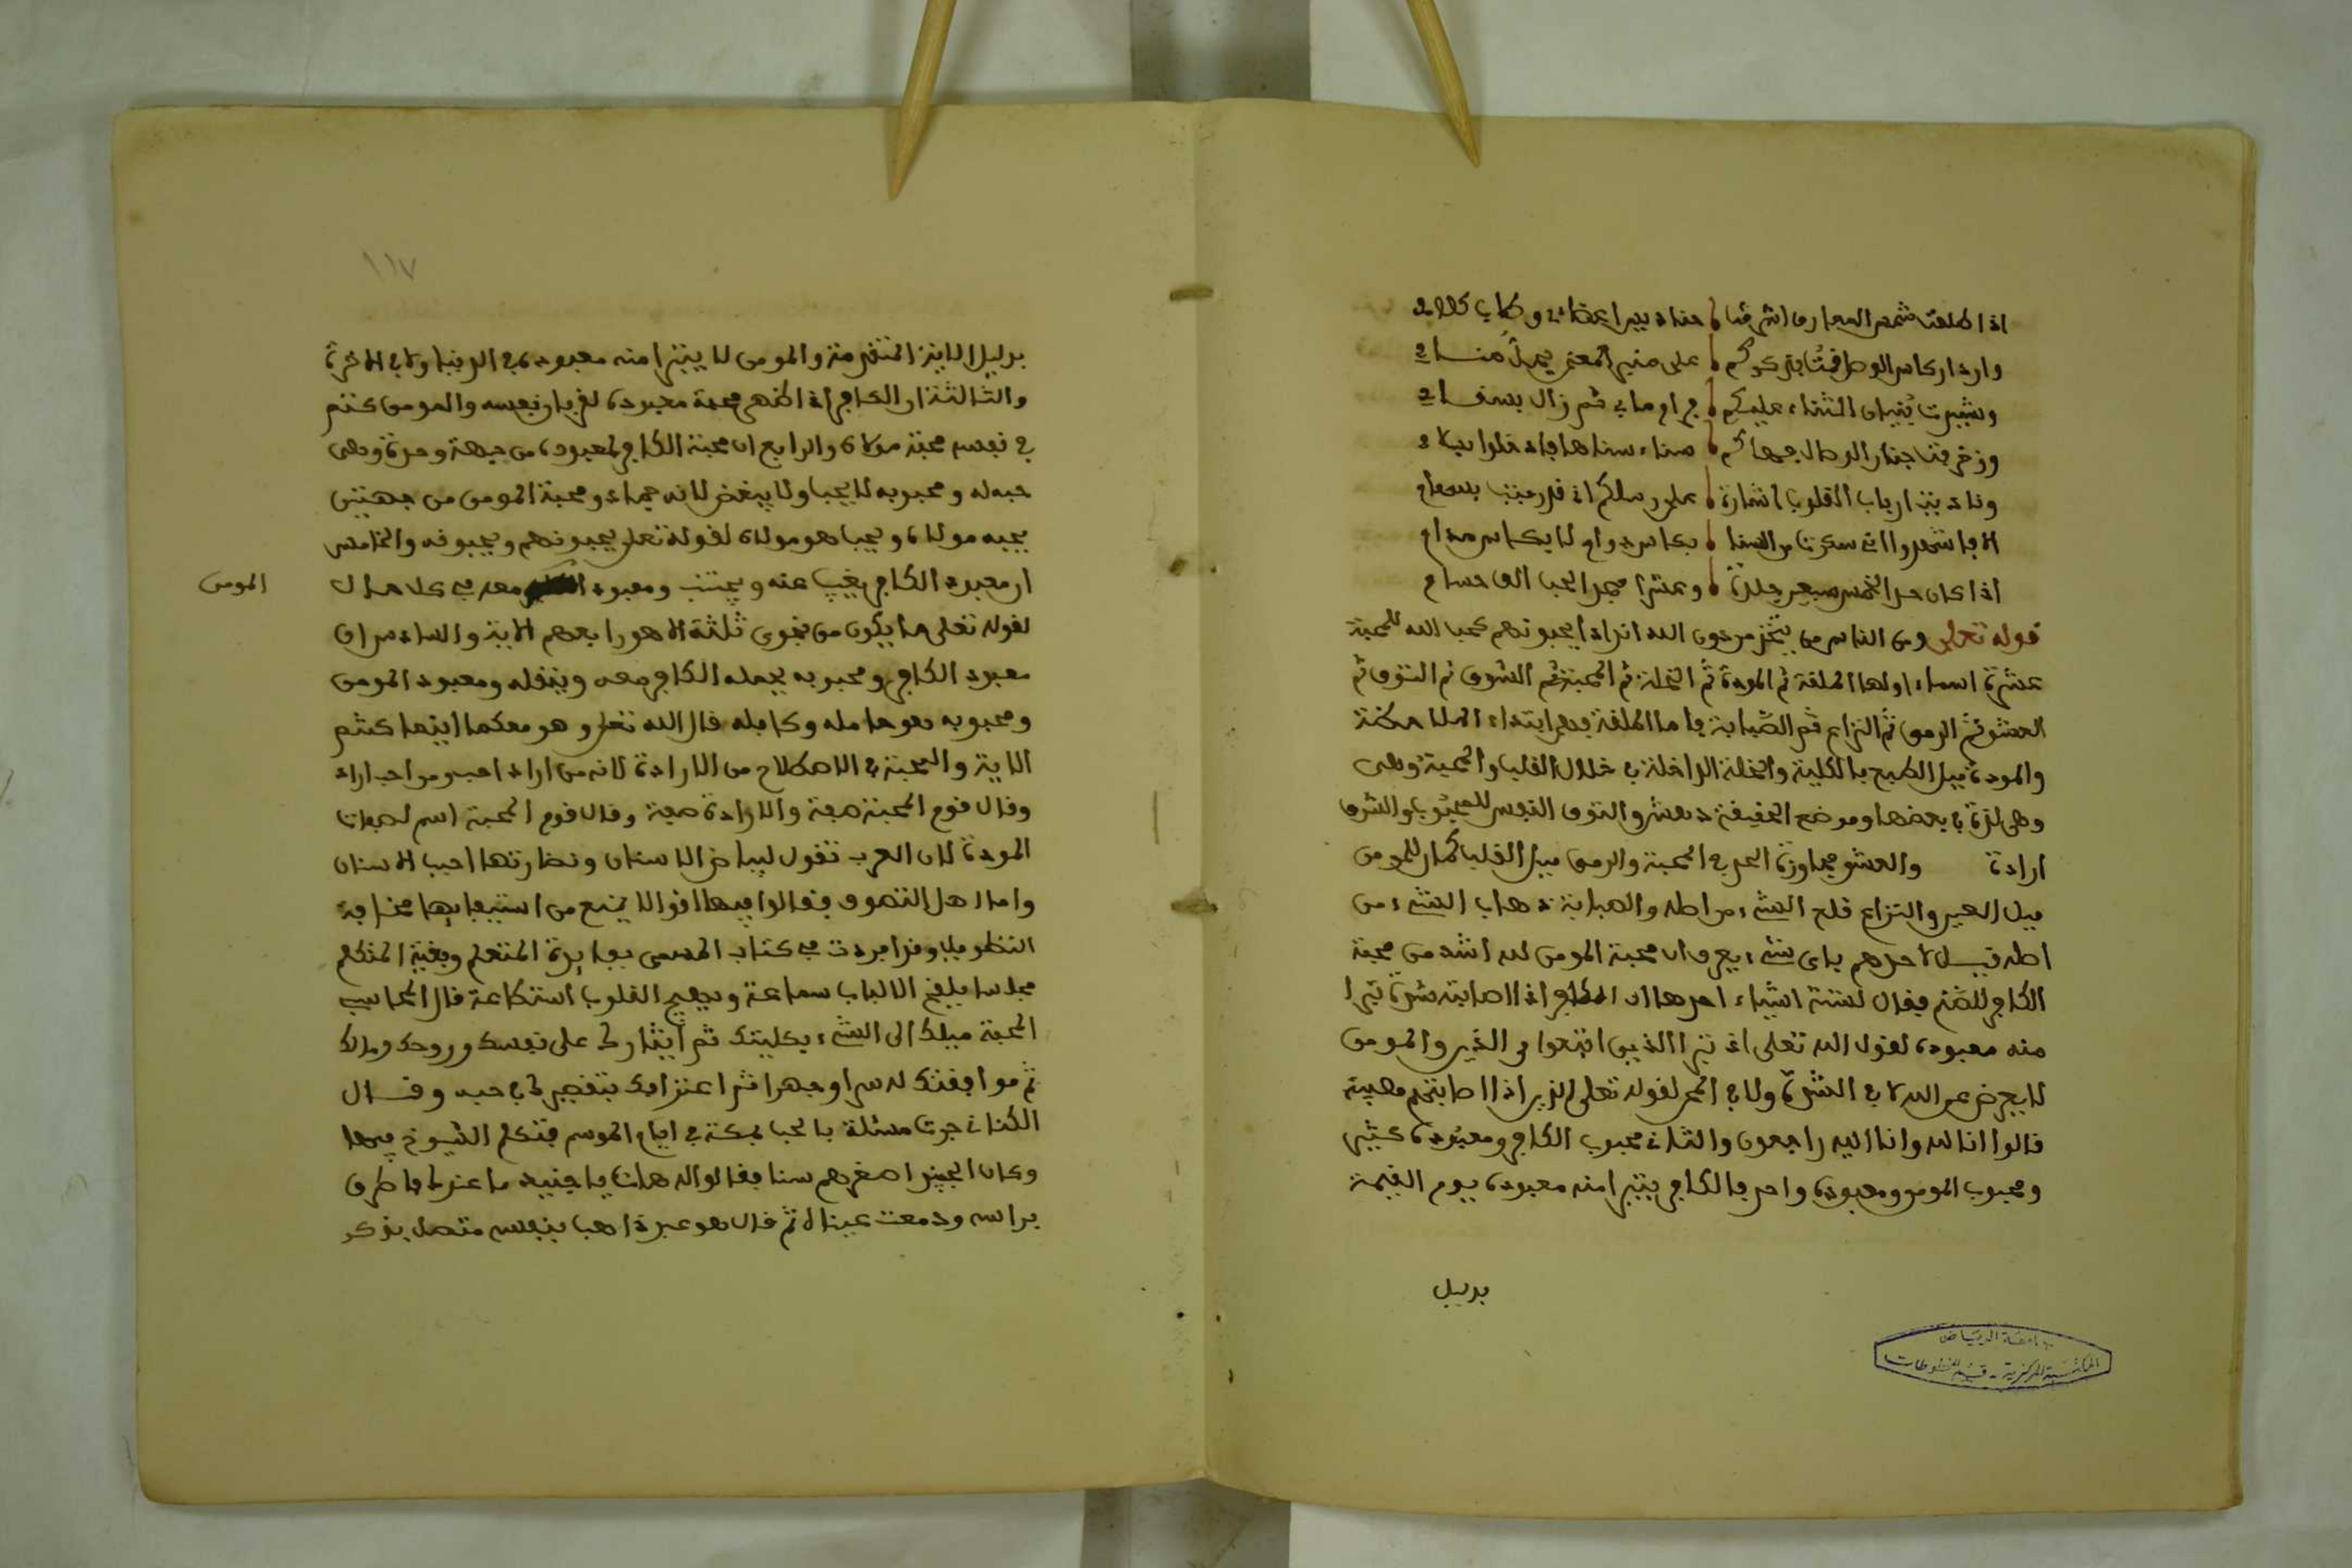 اذا طلعت شمس المعارف اشرقت حنادس اعضا وطاب كلام
وان دار كاس الوصل فيتا بذكركم على منبر المعنى يحل منام
وشبت نيران الثناء عليكم جرام مابى ثم زال بسقام
وزخرفت جنان الوصال بحماكم سناء سناها فادخلوا بسلام
ونادت ارباب القلوب اشارة على رسلكم اذ قد رميت بسهام
الا فاشهدوا انى سكرت من الهنا بكاس دوام لا بكاس مدام
اذا كان حد الخمر سبعين جلدة وعشرا فحد الحب الف حسام
قوله تعلى ومن الناس من يتخذ من دون الله اندادا يحبونهم كحب الله للمحبة
عشرة اسماء اولها العلقة ثم المودة ثم الخلة ثم المحبة ثم الشوق ثم التوق ثم
العشق ثم الومق ثم النزاع ثم الصبابة فاما العلقة فهى ابتداء الملاحظة
والمودة ميل الطبع بالكلية والخلة الداخلة فى خلال القلب والمحبة وهى
وهى لذة فى بعضها وموضع الحقيقة دهش والتوق النفس للمحبوب والشوق
ارادة والعشق مجاوزة الحد فى المحبة والومق ميل القلب كما ان للومق
ميل العين والنزاع قلع الشىء من اصله والصبابة ذهاب الشىء من
اصله قيل لاحدهم باى شىء يعرف ان محبة المومن لله اشد من محبة
الكافر للصنم فقال لستة اشياء احدها ان الكافر اذا اصابته شدة تبرا
منه معبوده لقول الله تعلى اذ تبرا الذين اتبعوا من الذين والمومن
لا يعرض عن الله لا فى الشدة ولا فى الضر لقوله تعلى الذين اذا اصابتهم مصيبة
قالوا انا لله وانا اليه راجعون والثانى محبوب الكافر ومعبوده كثير
ومحبوب المومن ومعبوده واحد فالكافر يتبرا منه معبوده يوم القيمة
بدليل
جامعة الرياض
المكتبة المركزية - قسم المخطوطات
١١٧
بدليل الاية المتقدمة والمومن لا يتبرا منه معبوده فى الدنيا ولا فى الاخرة
والثالثة ان الكافر اذا اظهر محبة معبوده لغيره بان بنفسه والمومن كتم
فى نفسه محبة مولاه والرابع ان محبة الكافر لمعبوده من جهة وحدة وهى
حبه له ومحبوبه لا يحب ولا يبغض لانه جماد ومحبة المومن من جهتين
يحبه مولاه ويحب هو مولاه لقوله تعلى يحبونهم ويحبونه والخامس
ان معبود الكافر يغيب عنه ويجتنب ومعبود المومن معه فى كل حال
لقوله تعلى ما يكون من نجوى ثلثة الا هو رابعهم الاية والسادس ان
معبود الكافر ومحبوبه يحمله الكافر معه وينقله ومعبود المومن
ومحبوبه هو حامله وكافله قال الله تعلى وهو معكم اينما كنتم
الاية والمحبة فى الاصطلاح من الارادة لانه من اراد احب ومن احب اراد
وقال قوم المحبة صفة والارادة صفة وقال قوم المحبة اسم لصفات
المودة لان العرب تقول لبياض الاسنان ونضارتها احبب الاسنان
واما اهل التصوف فقالوا فيها اقوالا يمنع من استيفائها مخافة
التطويل وقد افردت فى كتاب المسمى بفايدة المتعلم وبغية المتكلم
مجلسا يلقح الالباب سماعة ويهيج القلوب استطاعة قال المحاسبى
المحبة ميلك الى الشىء بكليتك ثم ايثارك له على نفسك وروحك ومالك
ثم موافقتك له سرا وجهرا ثم اعترافك بتقصيرك فى حبه وقال
الكتانى جرت مسئلة بالحب بمكة فى ايام الموسم فتكلم الشيوخ فيها
وكان الجنيد اصغرهم سنا فقالوا له هات يا جنيد ما عندك فاطرق
براسه ودمعت عيناه ثم قال هو عبد ذاهب بنفسه متصل بذكر